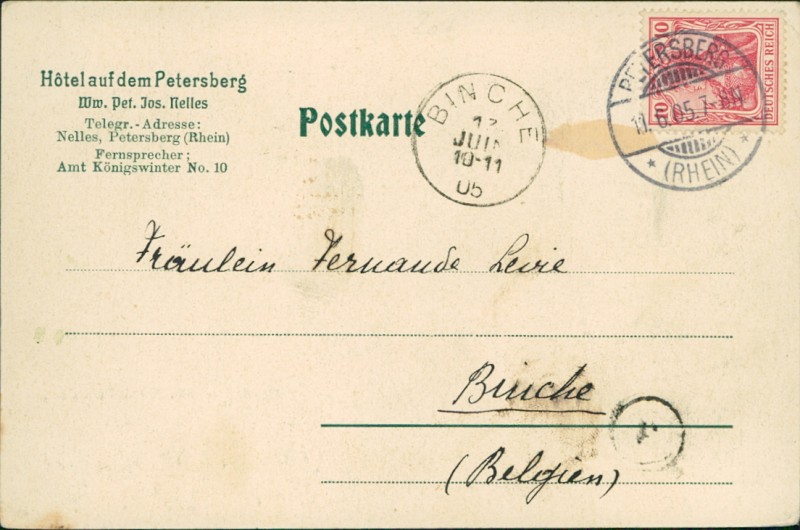 Hôtel auf dem Petersberg
Ww. Pet. Jos. Nelles
Telegr.-Adresse:
Nelles, Petersberg (Rhein)
Fernsprecher:
Amt Königswinter No. 10
Postkarte
BINCHE
JUIN
10-11
05
10 10
DEUTSCHES REICH
PETERSBERG
6.05.7-8N
* (RHEIN) *
Fräulein Fernande Leire
Binche
(Belgien)